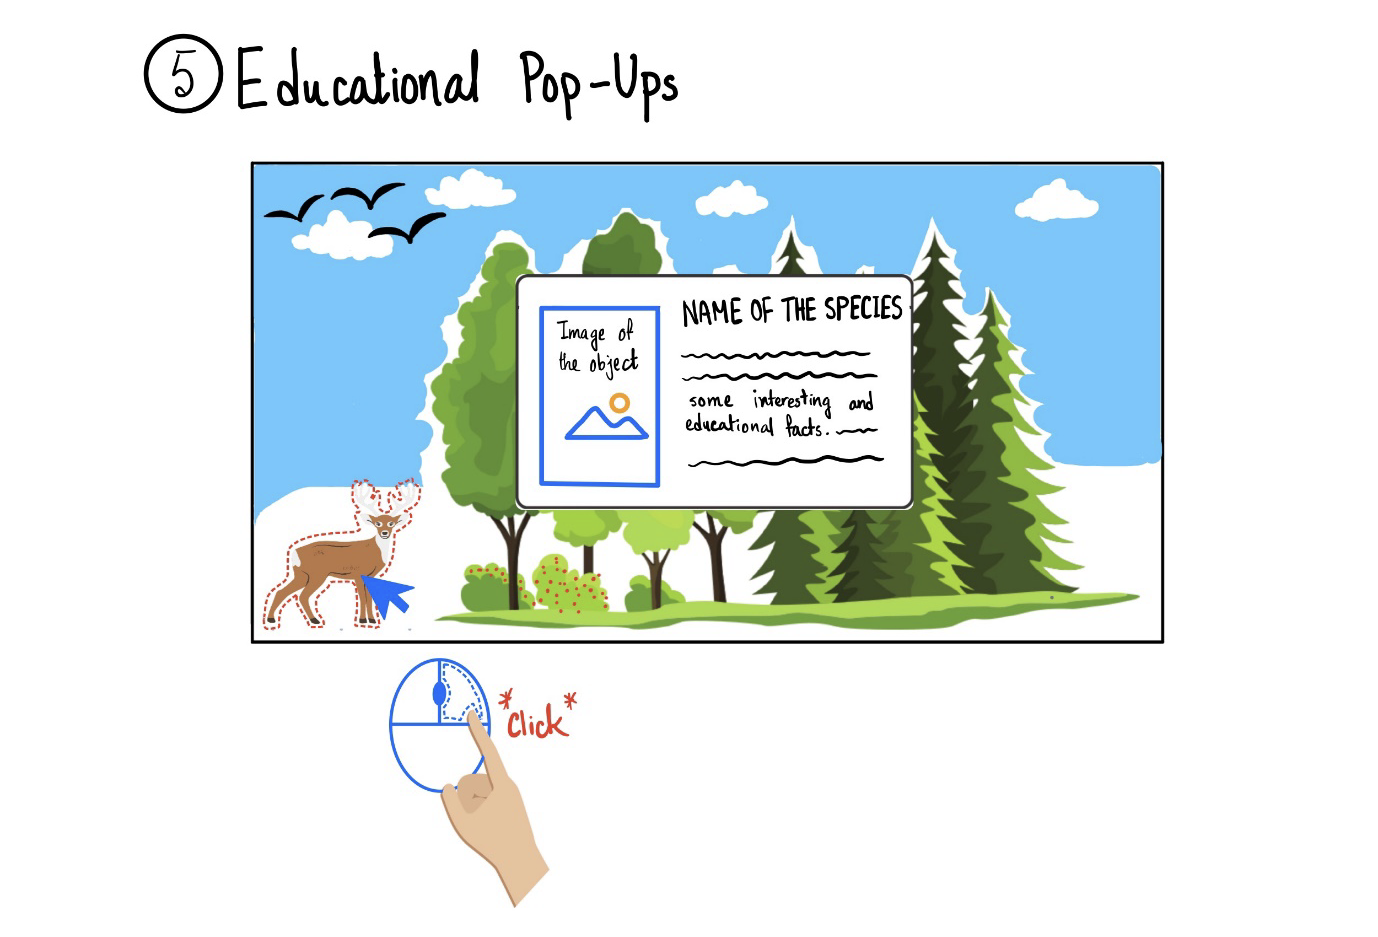 5 Educational Pop-Ups
Image of
the object
NAME OF THE SPECIES
some interesting and
educational facts.
*click*